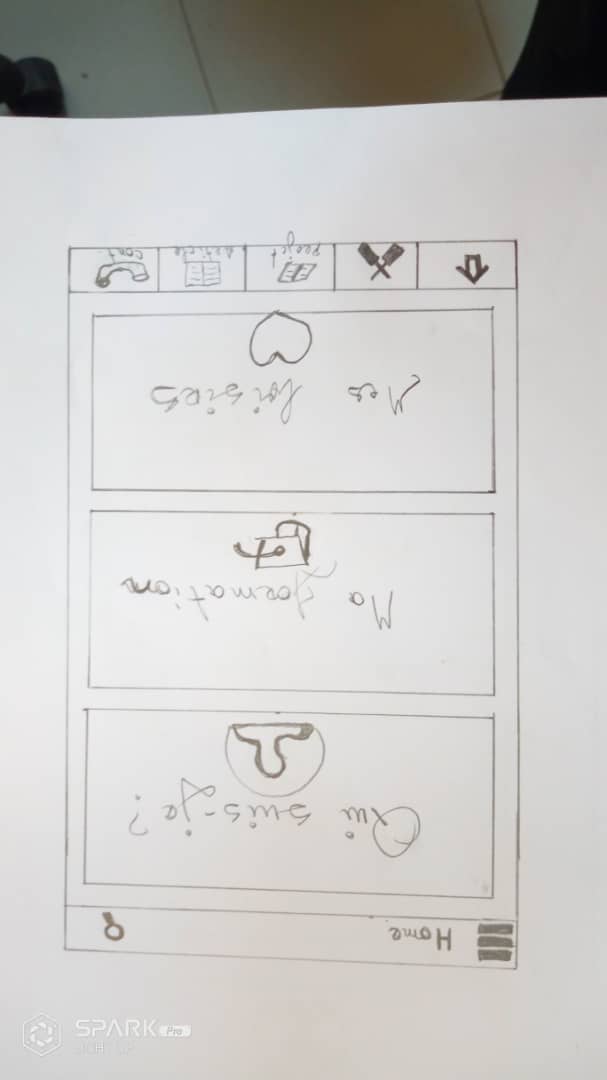 SPARK Pro
Home
Qui suis-je ?
Ma formation
Mes loisirs
projet
article
cont.